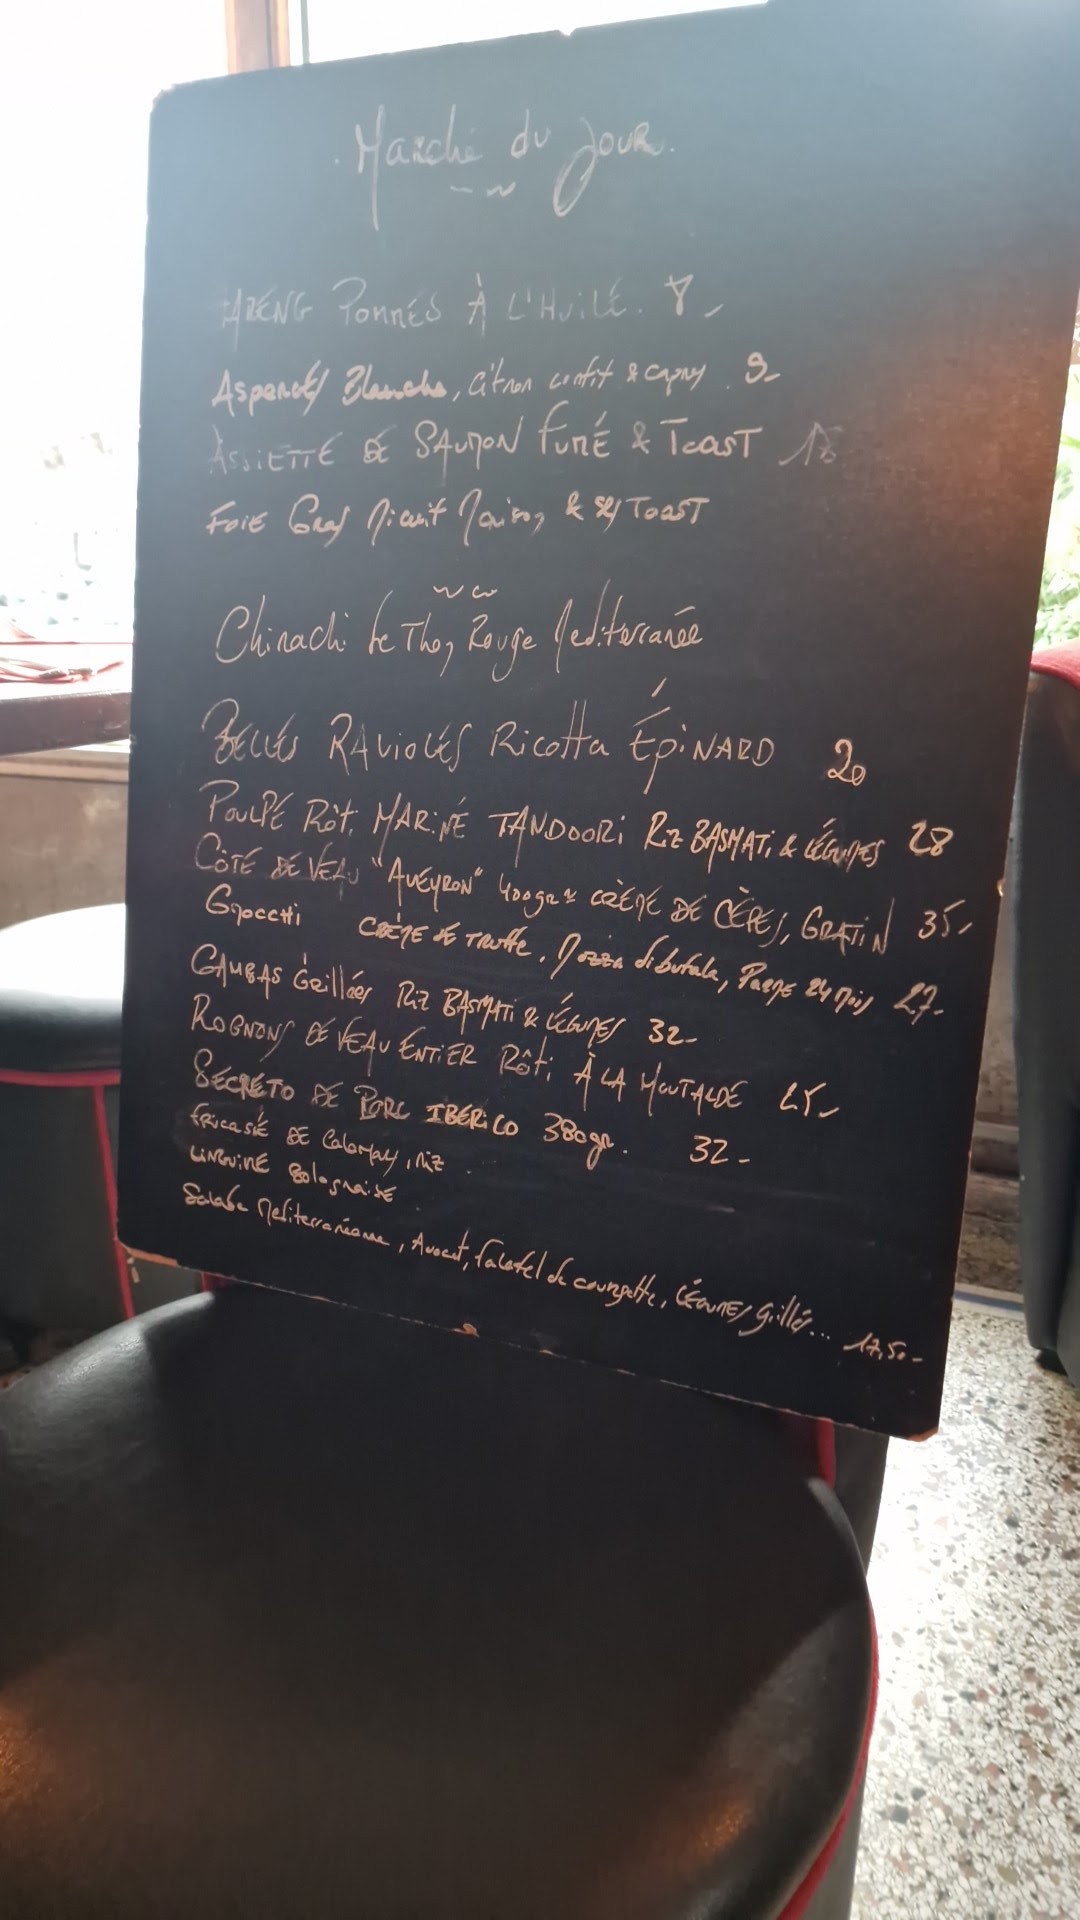 Marché du Jour
HARENG POMMES À L'HUILE.
Asperges Blanche, citron confit & capres. 9-
ASSIETTE DE SAUMON FUMÉ & TOAST
FOIE Gras Micuit Maison & ses TOAST
Chirachi de Thon Rouge Mediterranée
BELLES RAVIOLES Ricotta ÉPINARD 20
POULPE Rôti MARINÉ TANDOORI Riz BASMATi & LÉGUMES 28
CÔTE DE VEAU "AVEYRON" 400grs CRÈME DE CÈPES, GRATIN 35,
Gnocchi CRÈME DE TRUFFE, Mozza di bufala, PARME 24 MOIS 27-
GAMBAS Grillées Riz BASMATI & LÉGUMES 32-
ROGNONS DE VEAU ENTIER Rôti À LA MOUTARDE 25-
SECRETO DE PORC IBERICO 380gr. 32-
FRICASÉE DE Calamars, riz
LINGUINE Bolognaise
Salade Mediterranéenne, Avocat, falafel de courgette, LÉGUMES grillés... 17,50-